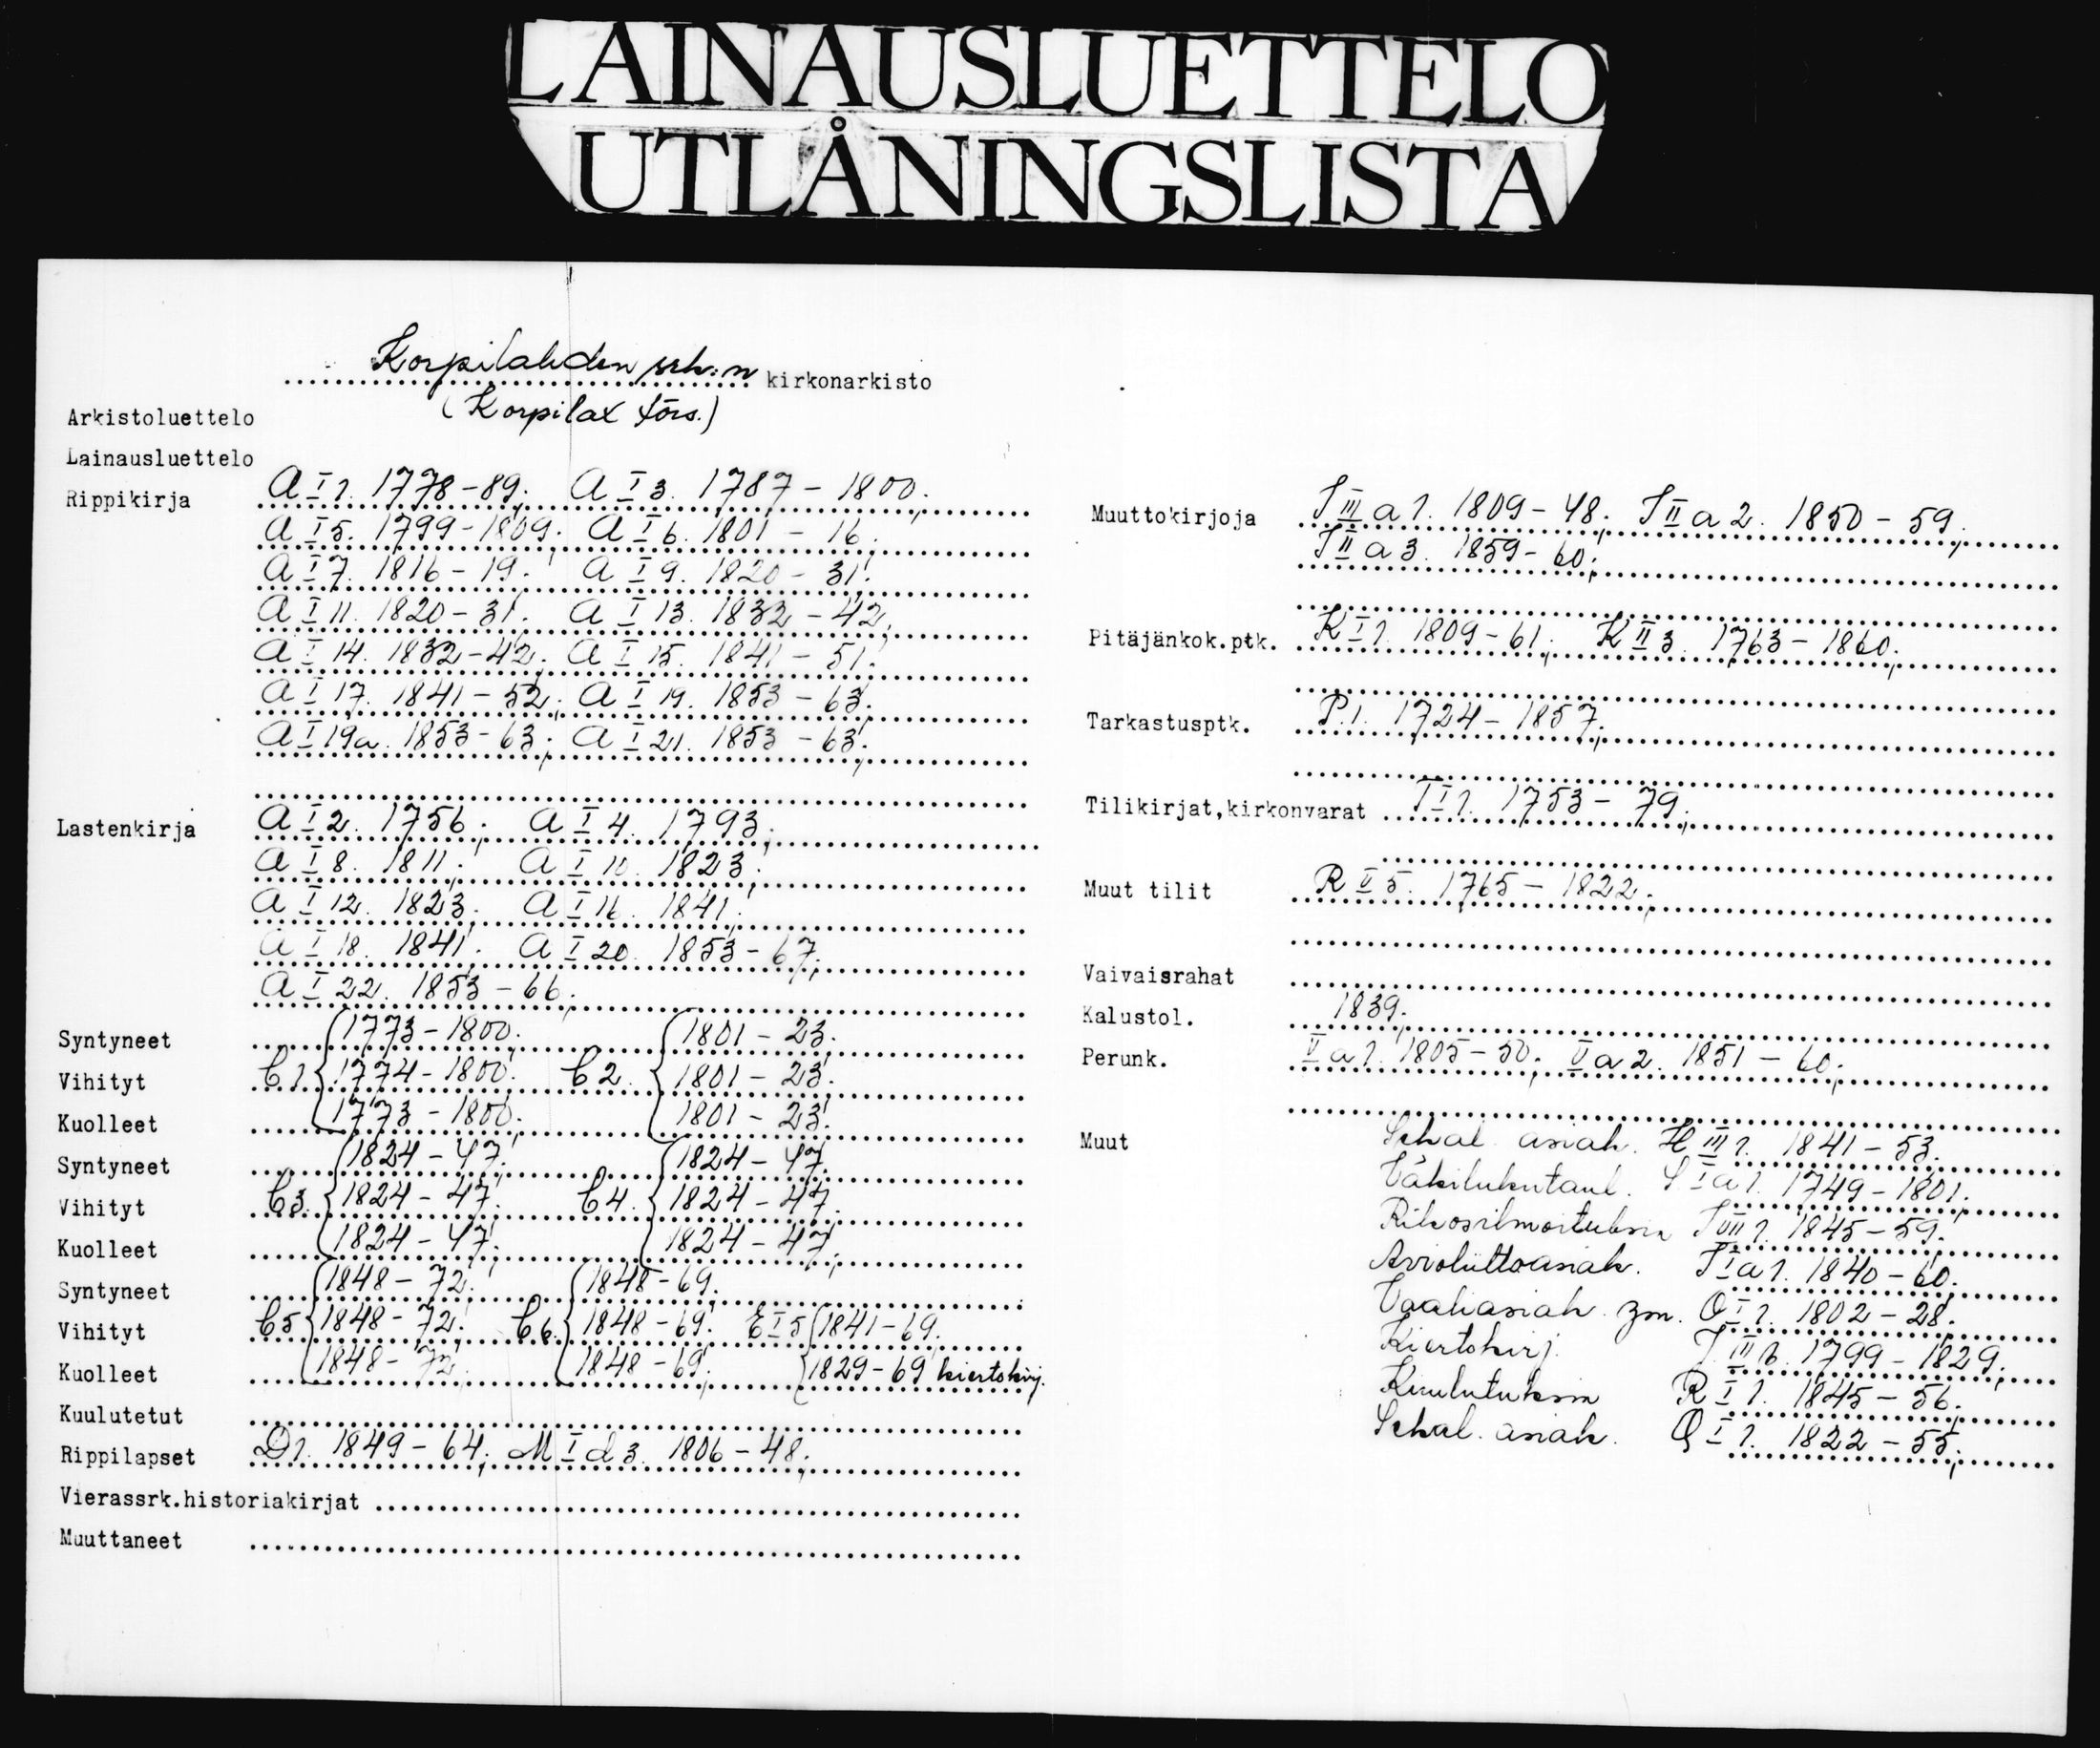 LAINAUSLUETTELO
UTLÅNINGSLISTA
Korpilahden srk:n kirkonarkisto
(Korpilax förs.)
Arkistoluettelo
Lainausluettelo
Rippikirja A I 1. 1778-89; A I 3. 1787-1800;
A I 5. 1799-1809; A I 6. 1801-16;
A I 7. 1816-19; A I 9. 1820-31;
A I 11. 1820-31; A I 13. 1832-42;
A I 14. 1832-42; A I 15. 1841-51;
A I 17. 1841-52; A I 19. 1853-63;
A I 19a. 1853-63; A I 21. 1853-63;
Lastenkirja A I 2. 1756; A I 4. 1793;
A I 8. 1811; A I 10. 1823;
A I 12. 1823; A I 16. 1841;
A I 18. 1841; A I 20. 1853-67;
A I 22. 1853-66;
Syntyneet 1773-1800; 1801-23;
Vihityt C 1. 1774-1800; C 2. 1801-23;
Kuolleet 1773-1800; 1801-23;
Syntyneet 1824-47; 1824-47;
Vihityt C 3. 1824-47; C 4. 1824-47;
Kuolleet 1824-47; 1824-47;
Syntyneet 1848-72; 1848-69;
Vihityt C 5 1848-72; C 6. 1848-69; E I 5 1841-69;
Kuolleet 1848-72; 1848-69; 1829-69 kiertokirj.
Kuulutetut
Rippilapset D 1. 1849-64; M I d 3. 1806-48;
Vierassrk.historiakirjat
Muuttaneet
Muuttokirjoja III a 1. 1809-48; II a 2. 1850-59;
II a 3. 1859-60;
Pitäjänkok.ptk. K I 1. 1809-61; K II 3. 1763-1860;
Tarkastusptk. P. 1. 1724-1857;
Tilikirjat,kirkonvarat T I 1. 1753-79;
Muut tilit R II 5. 1765-1822;
Vaivaisrahat
Kalustol. 1839;
Perunk. a 1. 1805-50; a 2. 1851-60;
Muut Sekal. asiak. H III 1. 1841-53;
Väkilukutaul. I a 1. 1749-1801;
Rikosilmoituksia VII 1. 1845-59;
Avioliittoasiak. I a 1. 1840-60;
Vaaliasiak. ym. O I 1. 1802-28;
Kiertokirj. III b. 1799-1829;
Kuulutuksia R I 1. 1845-56;
Sekal. asiak. Q I 1. 1822-55;